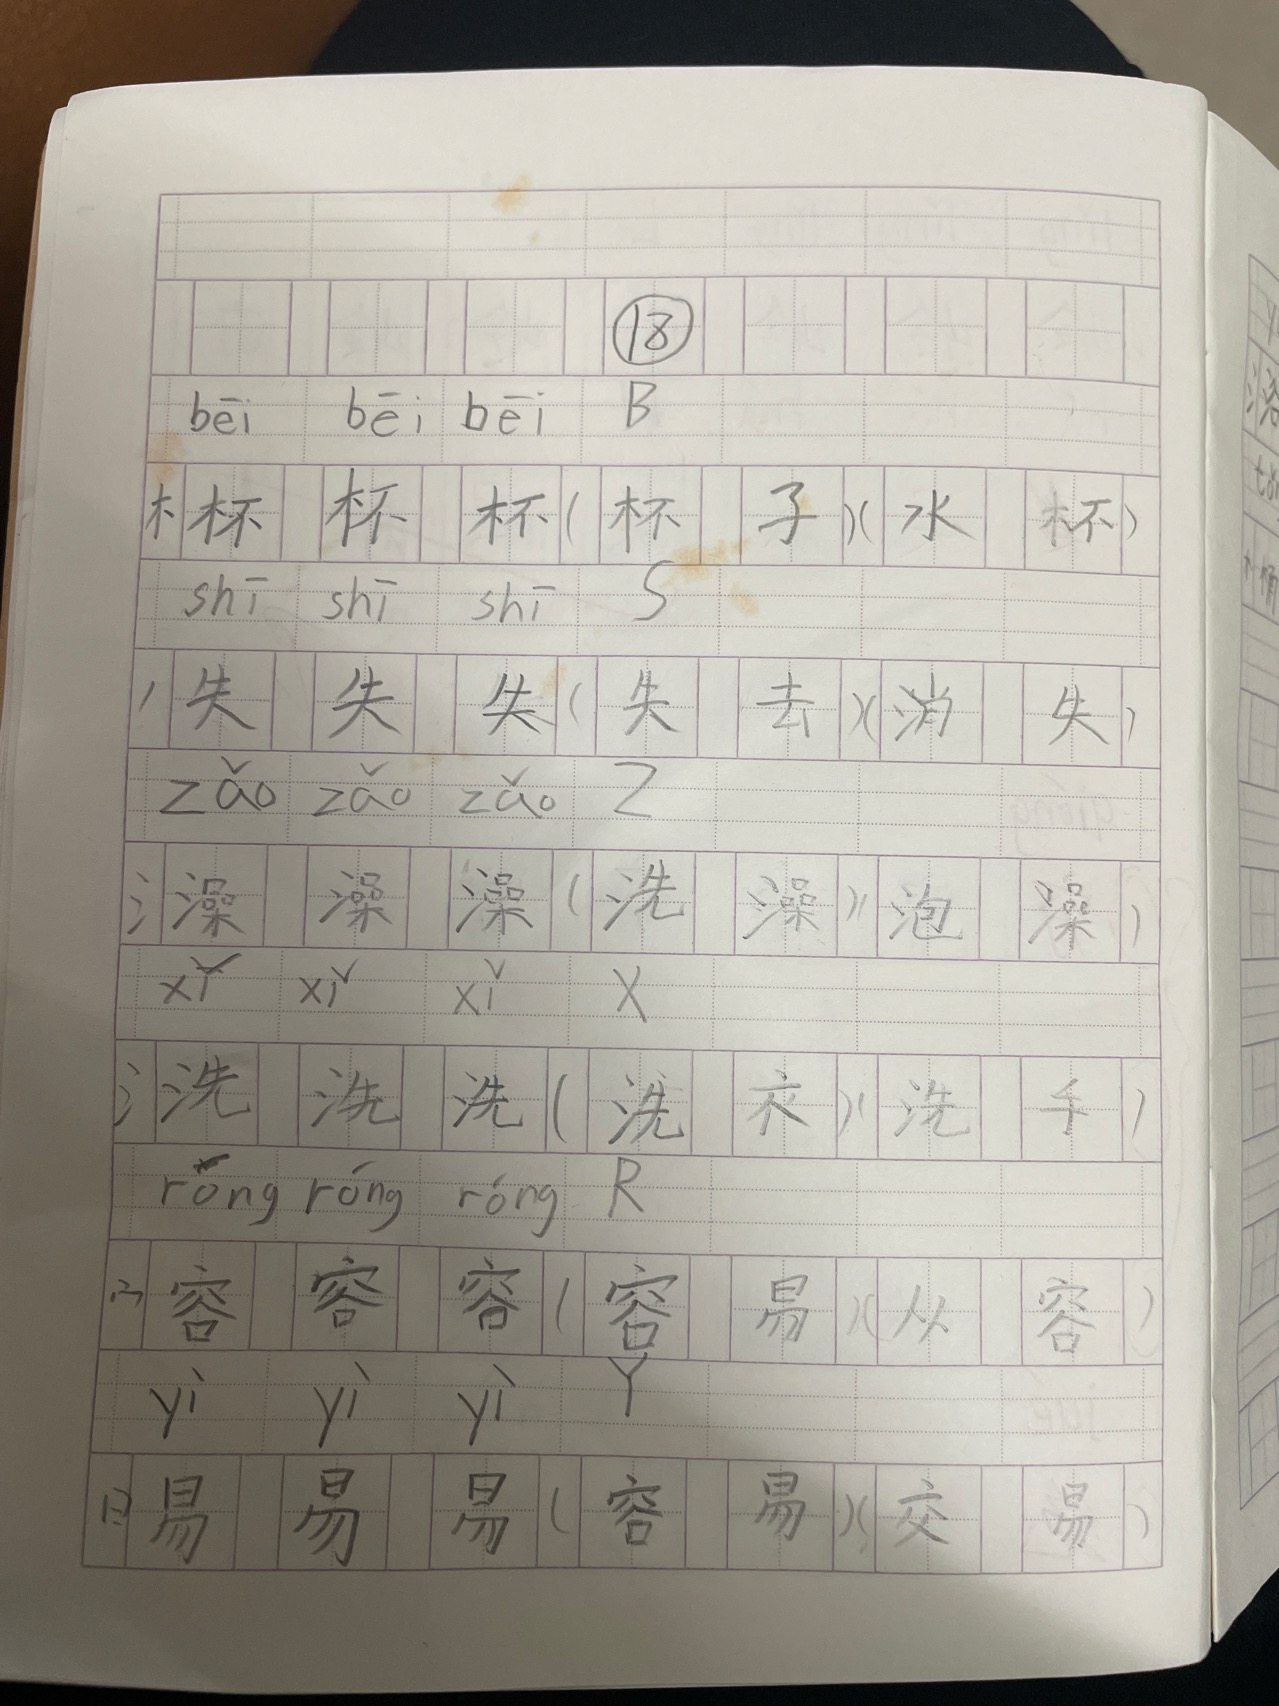 ⑱
bēi bēi bēi B
木 杯 杯 杯 (杯 子)(水 杯)
shī shī shī S
丿 失 失 失 (失 去)(消 失)
zǎo zǎo zǎo Z
氵 澡 澡 澡 (洗 澡)(泡 澡)
xǐ xǐ xǐ X
氵 洗 洗 洗 (洗 衣)(洗 手)
róng róng róng R
宀 容 容 容 (容 易)(从 容)
yì yì yì Y
日 易 易 易 (容 易)(交 易)